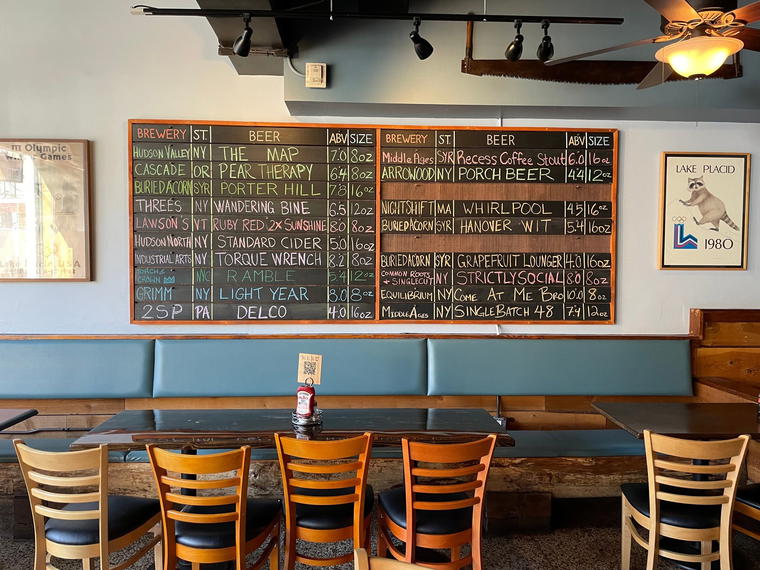 m Olympic
BREWERY ST. BEER ABV SIZE
HUDSON VALLEY NY THE MAP 7.0 8oz
CASCADE OR PEAR THERAPY 6.4 8oz
BURIED ACORN SYR PORTER HILL 7.8 16oz
THREES NY WANDERING BINE 6.5 12oz
LAWSON'S VT RUBY RED 2X SUNSHINE 8.0 8oz
HUDSON NORTH NY STANDARD CIDER 5.0 16oz
INDUSTRIAL ARTS NY TORQUE WRENCH 8.2 8oz
TORCH & CROWN RAMBLE 5.4 12oz
GRIMM NY LIGHT YEAR 8.0 8oz
2SP PA DELCO 4.0 16oz
BREWERY ST BEER ABV SIZE
Middle Ages SYR Recess Coffee Stout 6.0 16oz
ARROWOOD NY PORCH BEER 4.4 12oz
NIGHTSHIFT MA WHIRLPOOL 4.5 16oz
BURIED ACORN SYR HANOVER WIT 5.4 16oz
BURIED ACORN SYR GRAPEFRUIT LOUNGER 4.0 16oz
COMMON ROOTS & SINGLECUT NY STRICTLY SOCIAL 8.0 8oz
EQUILIBRIUM NY COME AT ME BRO 10.0 8oz
MIDDLE AGES NY SINGLE BATCH 48 7.4 12oz
LAKE PLACID
1980